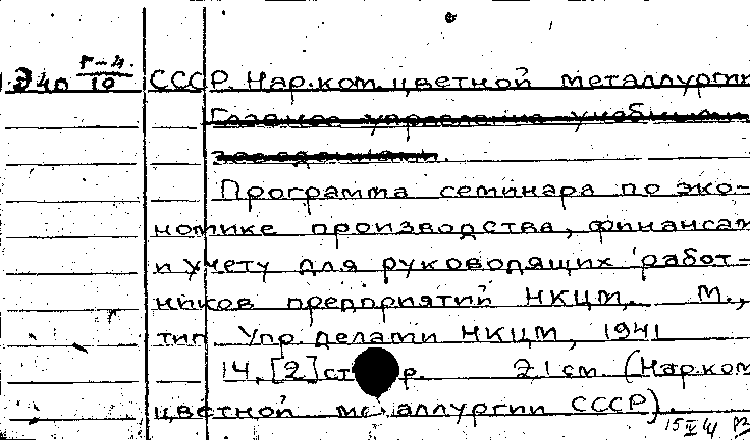 Э4п Г-4. СССР. Нар.ком.цветной металлургии
10
Главное управление учебными
заведениями.
Программа семинара по эко-
номике производства, финансам
и учету для руководящих работ-
ников предприятий НКЦМ. М.,
тип. Упр. делами НКЦМ, 1941
14,[2]стр. 21 см. (Нарком
цветной металлургии СССР).
15